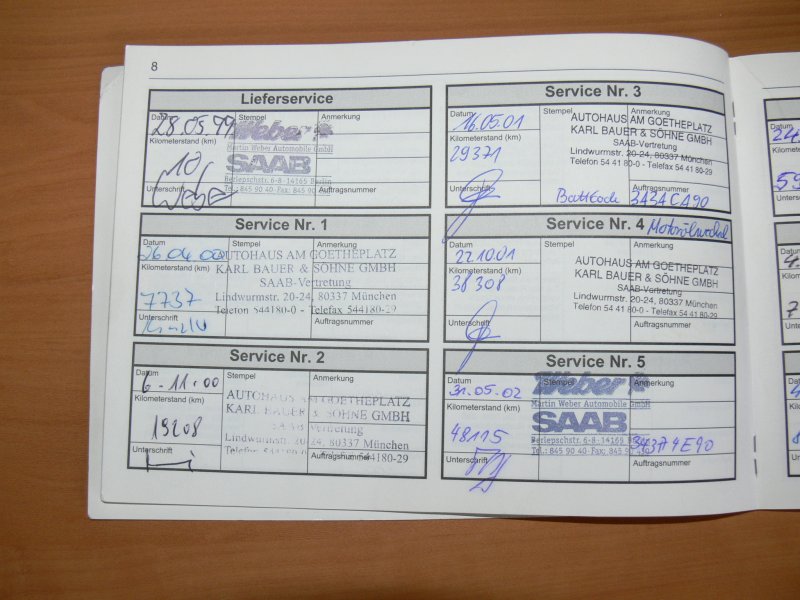 8
Lieferservice
Datum Stempel Anmerkung
28.05.99 Weber
Kilometerstand (km) Martin Weber Automobile GmbH
10 SAAB
Berlepschstr. 6-8 · 14165 Berlin
Unterschrift Tel.: 845 90 40 · Fax: 845 90 Auftragsnummer
Service Nr. 1
Datum Stempel Anmerkung
26.04.00 AUTOHAUS AM GOETHEPLATZ
Kilometerstand (km) KARL BAUER & SÖHNE GMBH
SAAB-Vertretung
7737 Lindwurmstr. 20-24, 80337 München
Telefon 544180-0 - Telefax 544180-29
Unterschrift Auftragsnummer
Service Nr. 2
Datum Stempel Anmerkung
6-11.00 AUTOHAUS AM GOETHEPLATZ
Kilometerstand (km) KARL BAUER & SÖHNE GMBH
19208 SAAB-Vertretung
Lindwurmstr. 20-24, 80337 München
Unterschrift Auftragsnummer
Service Nr. 3
Datum Stempel Anmerkung
16.05.01 AUTOHAUS AM GOETHEPLATZ
Kilometerstand (km) KARL BAUER & SÖHNE GMBH
SAAB-Vertretung
29371 Lindwurmstr. 20-24, 80337 München
Telefon 54 41 80-0 - Telefax 54 41 80-29
Unterschrift Auftragsnummer
BattCode 3434CA90
Service Nr. 4 Motorölwechsel
Datum Stempel Anmerkung
22.10.01 AUTOHAUS AM GOETHEPLATZ
Kilometerstand (km) KARL BAUER & SÖHNE GMBH
38308 SAAB-Vertretung
Lindwurmstr. 20-24, 80337 München
Telefon 54 41 80-0 - Telefax 54 41 80-29
Unterschrift Auftragsnummer
Service Nr. 5
Datum Stempel Anmerkung
31.05.02 Weber
Kilometerstand (km) Martin Weber Automobile GmbH
SAAB
48115 Berlepschstr. 6-8 · 14165 Berlin 343A4E90
Unterschrift Tel.: 845 90 40 · Fax: 845 90 Auftragsnummer
Datum
24
Kilometers
59
Unters